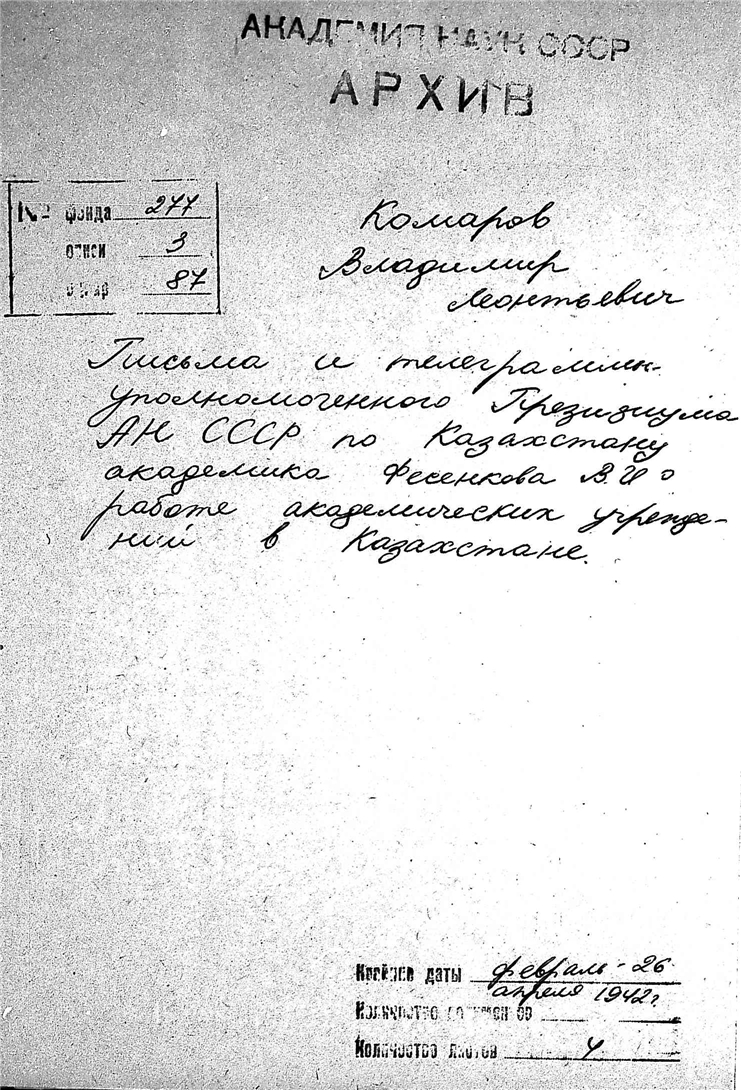 АКАДЕМИЯ НАУК СССР
АРХИВ
№ фонда 277
описи 3
ед. хр 87
Комаров
Владимир
Леонтьевич
Письма и телеграммы
уполномоченного Президиума
АН СССР по Казахстану
академика Фесенкова В.И о
работе академических учрежде-
ний в Казахстане.
Крайние даты февраль - 26
апреля 1942 г.
Количество документов
Количество листов 4